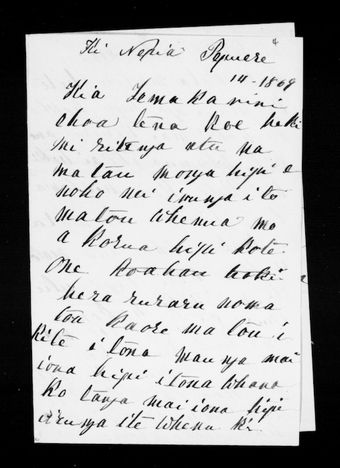 Ki Nepia Pomere
14-1868
Kia Temakarini
ehoa tena koe heki
mi ritenga atu na
matau monga hipi e
noho nei irunga ite
matou whenua mo
a korua hipi kote
One koahau hoki
hera ruraru nowa
tou kaore matou i
kite i tona maunga mai
iona hipi itona whana
ko tanga mai iona hipi
irunga ite whenu ki